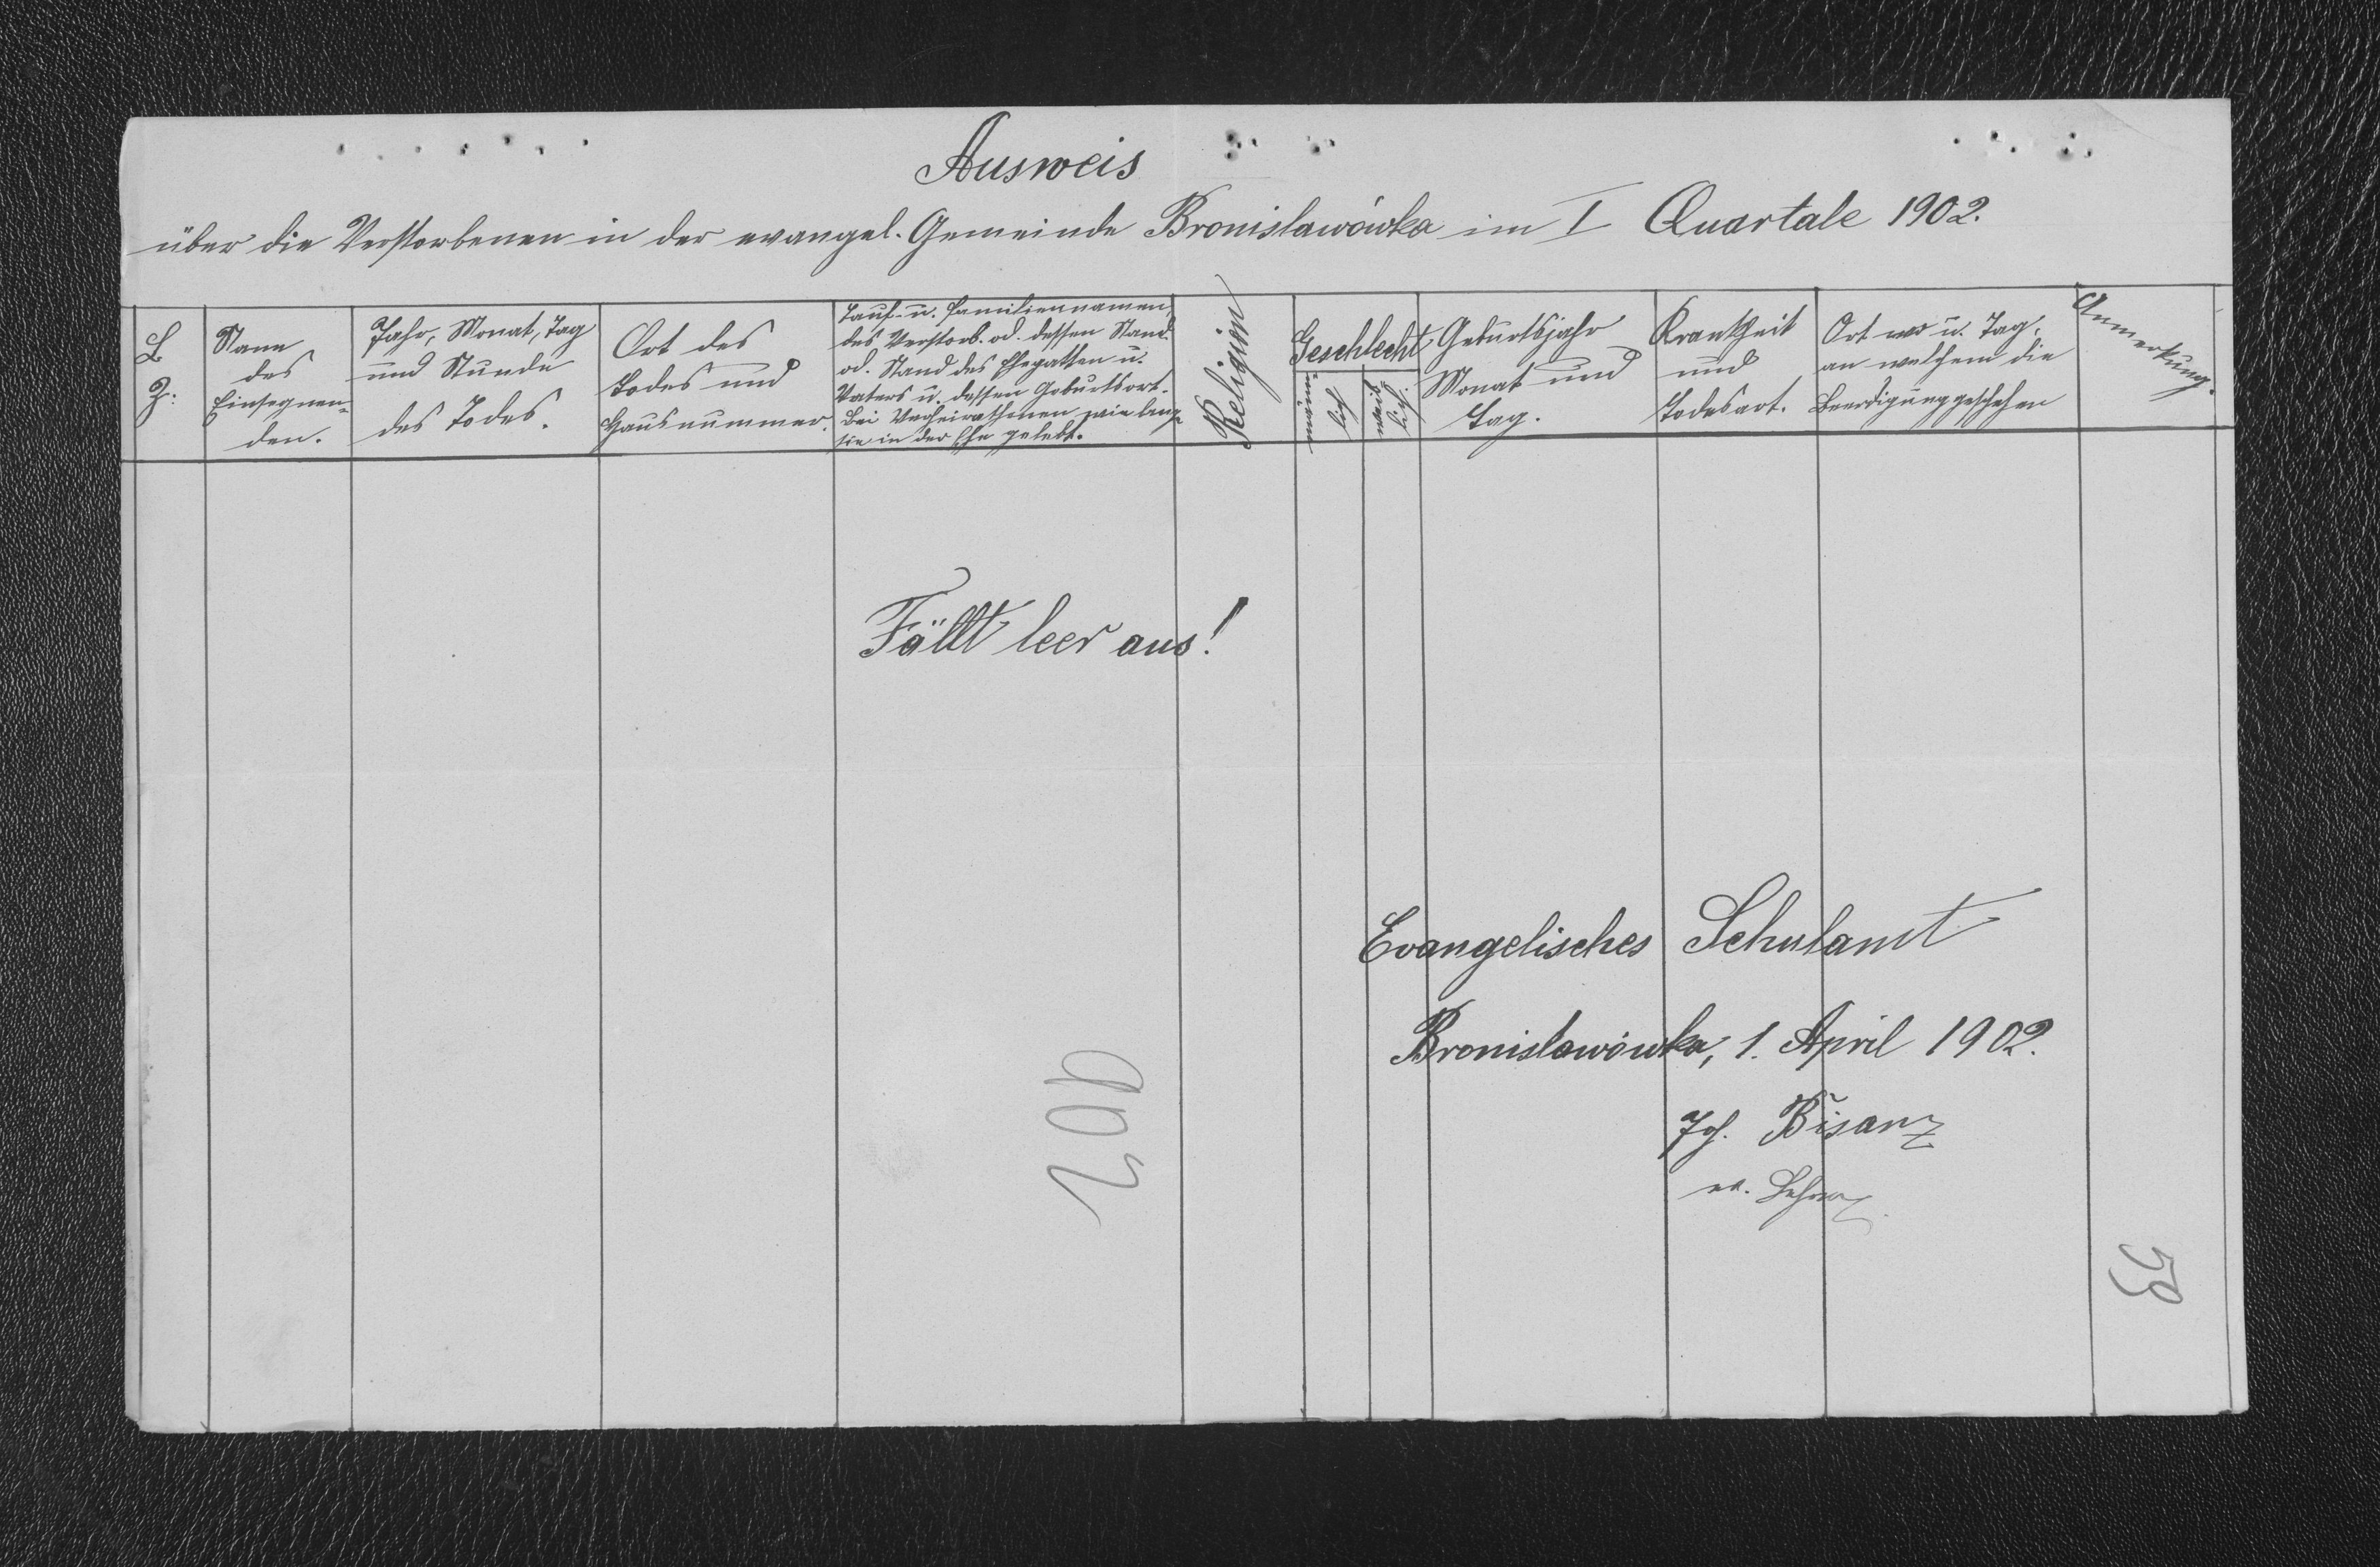 Ausweis
über die Verstorbenen in der evangel. Gemeinde Bronislawówka im I Quartale 1902.
L.
Z.
Name
des
Einsegnen-
den.
Jahr, Monat, Tag
und Stunde
des Todes.
Ort des
Todes und
Hausnummer.
Tauf- u. Familiennamen
des Verstorb. od. dessen Stand
od. Stand des Ehegatten u.
Vaters u. dessen Geburtsort.
Bei Verheiratheten wie lang
sie in der Ehe gelebt.
Religion
Geschlecht
männ-
lich
weib-
lich
Geburtsjahr
Monat und
Tag.
Krankheit
und
Todesart.
Ort wo u. Tag,
an welchem die
Beerdigung geschehen
Anmerkung.
Fällt leer aus!
Evangelisches Schulamt
Bronislawówka, 1. April 1902.
Joh. Bisanz
ev. Lehrer
202
59